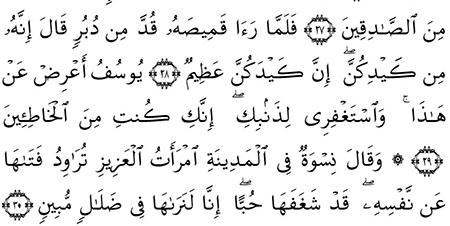 مِنَ ٱلصَّـٰدِقِينَ ﴿٢٧﴾ فَلَمَّا رَءَا قَمِيصَهُۥ قُدَّ مِن دُبُرٍ قَالَ إِنَّهُۥ
مِن كَيْدِكُنَّ ۖ إِنَّ كَيْدَكُنَّ عَظِيمٌ ﴿٢٨﴾ يُوسُفُ أَعْرِضْ عَنْ
هَـٰذَا ۚ وَٱسْتَغْفِرِى لِذَنۢبِكِ ۖ إِنَّكِ كُنتِ مِنَ ٱلْخَاطِـِٔينَ
﴿٢٩﴾ ۞ وَقَالَ نِسْوَةٌ فِى ٱلْمَدِينَةِ ٱمْرَأَتُ ٱلْعَزِيزِ تُرَٰوِدُ فَتَىٰهَا
عَن نَّفْسِهِۦ ۖ قَدْ شَغَفَهَا حُبًّا ۖ إِنَّا لَنَرَىٰهَا فِى ضَلَـٰلٍ مُّبِينٍ ﴿٣٠﴾